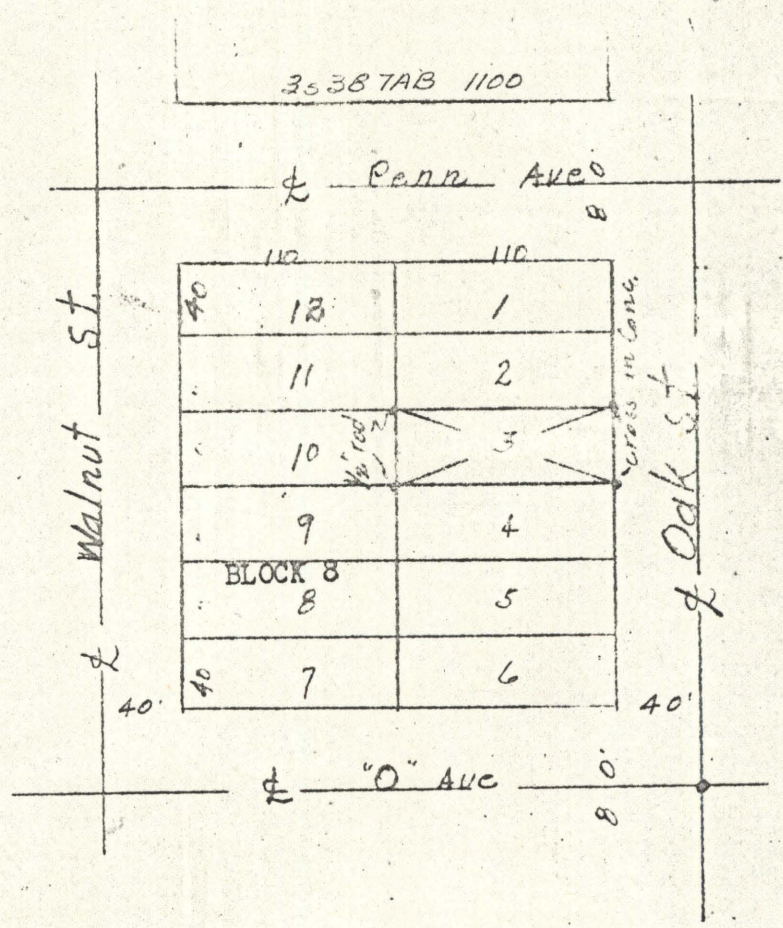 3S 38 7AB 1100
℄ Penn Ave
80'
110 110
40 12 1
11 2
10 3
1/2" rod
cross in Conc.
9 4
BLOCK 8
8 5
40 7 6
40' 40'
℄ Walnut St.
℄ Oak St
℄ "O" Ave
80'